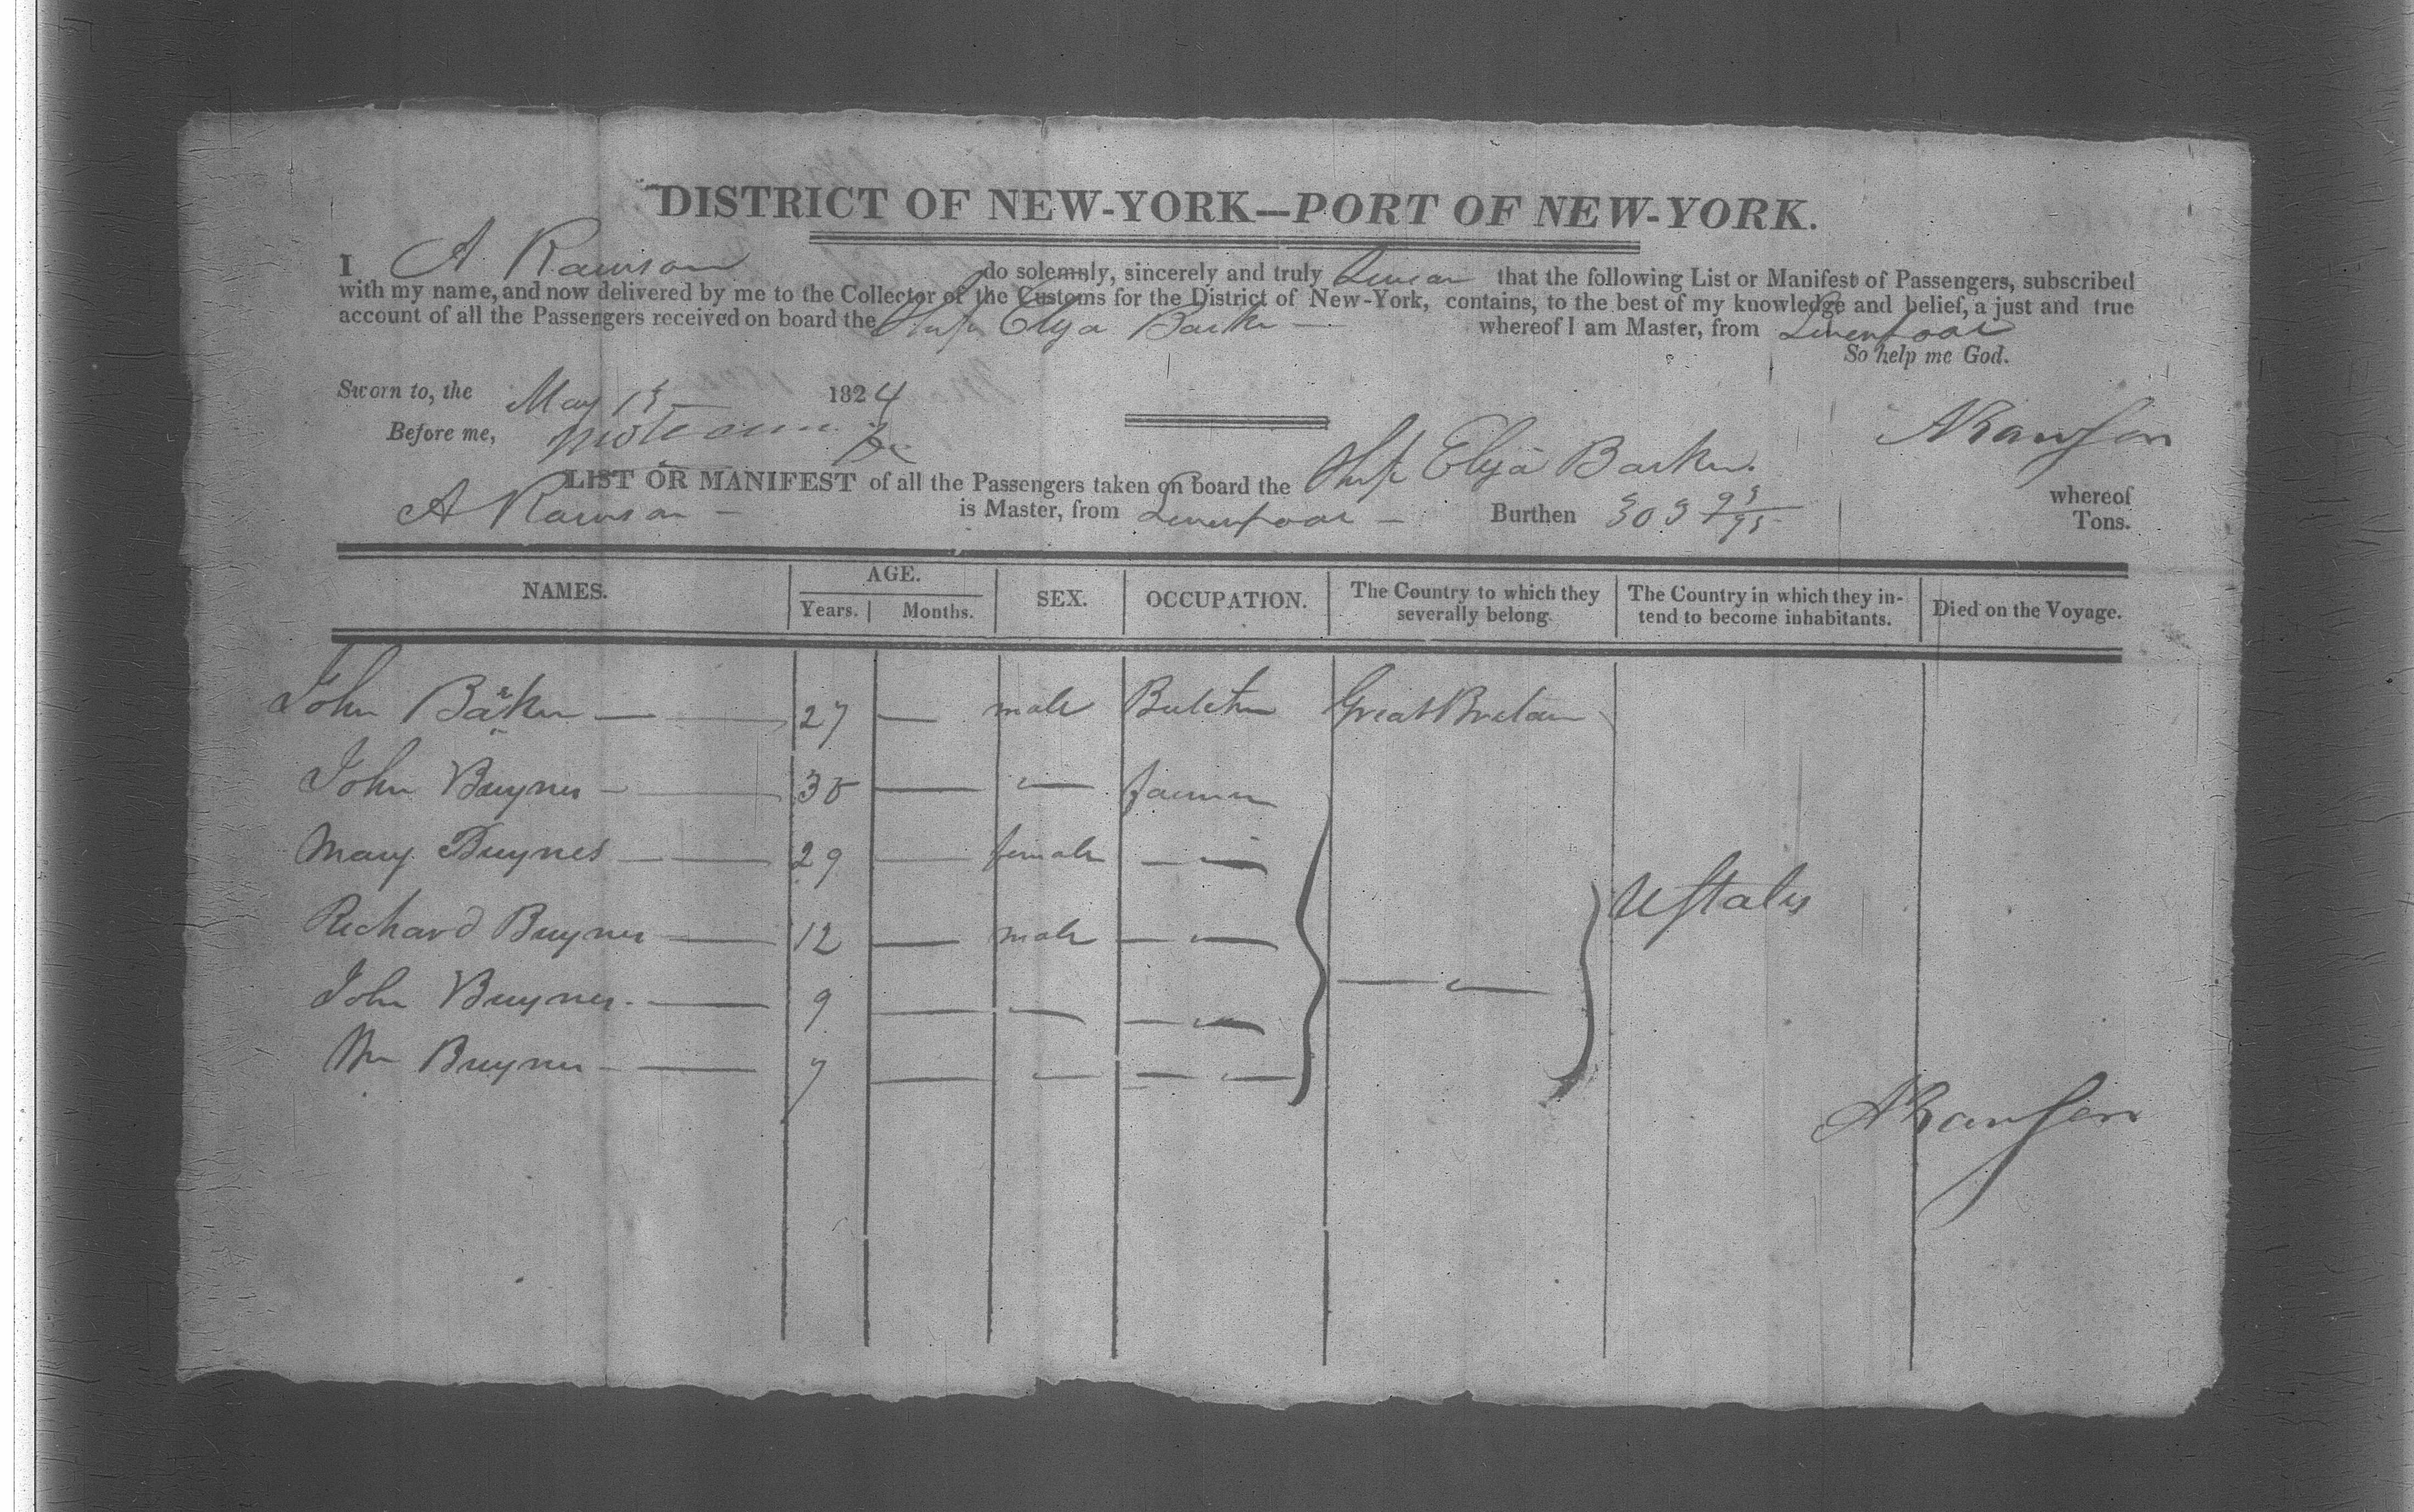 DISTRICT OF NEW-YORK—PORT OF NEW-YORK.
I A. Rawson do solemnly, sincerely and truly Swear that the following List or Manifest of Passengers, subscribed
with my name, and now delivered by me to the Collector of the Customs for the District of New-York, contains, to the best of my knowledge and belief, a just and true
account of all the Passengers received on board the Ship Eliza Barker — whereof I am Master, from Liverpool
So help me God.
Sworn to, the May 15 — 1824
Before me,
ARawson
LIST OR MANIFEST of all the Passengers taken on board the Ship Eliza Barker. whereof
A Rawson — is Master, from Liverpool — Burthen 303 93/95 Tons.
NAMES. AGE. Years. Months. SEX. OCCUPATION. The Country to which they severally belong. The Country in which they intend to become inhabitants. Died on the Voyage.
John Baker — 27 — male Butcher Great Britain
John Buynes — — farmer
Mary Buynes — 29 — female — "
Richard Buynes — 12 — male — "
UStates
John Buynes — 9 — " — "
Wm Buynes — 7 — " — "
ARawson